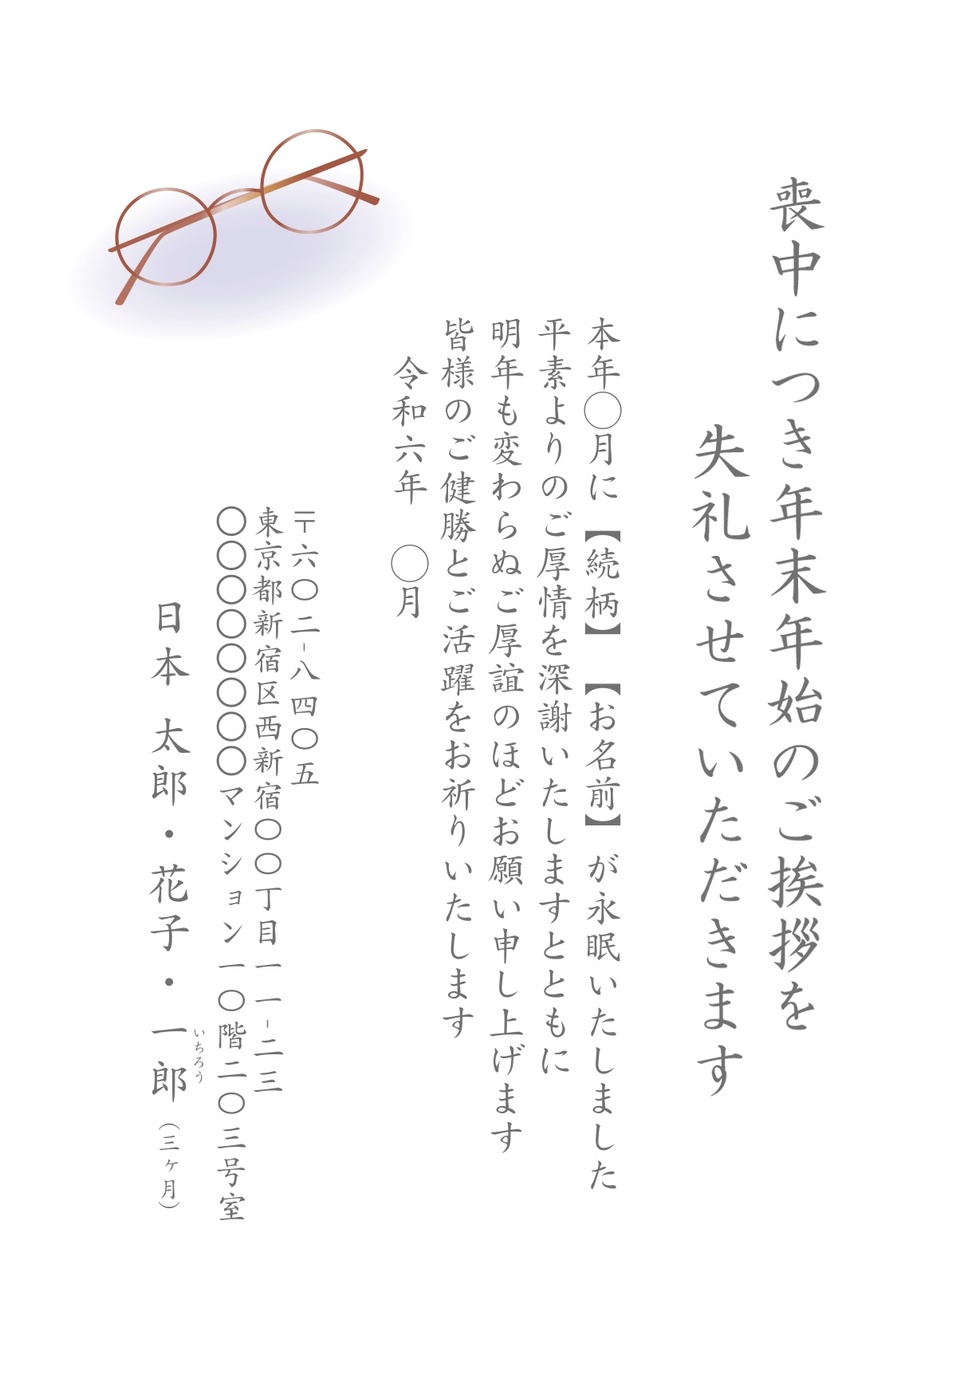 喪中につき年末年始のご挨拶を
失礼させていただきます
本年◯月に【続柄】【お名前】が永眠いたしました
平素よりのご厚情を深謝いたしますとともに
明年も変わらぬご厚誼のほどお願い申し上げます
皆様のご健勝とご活躍をお祈りいたします
令和六年　◯月
〒六〇二-八四〇五
東京都新宿区西新宿〇〇丁目一一-二三
〇〇〇〇〇〇〇〇マンション一〇階二〇三号室
いちろう
日本　太郎・花子・一郎（三ヶ月）